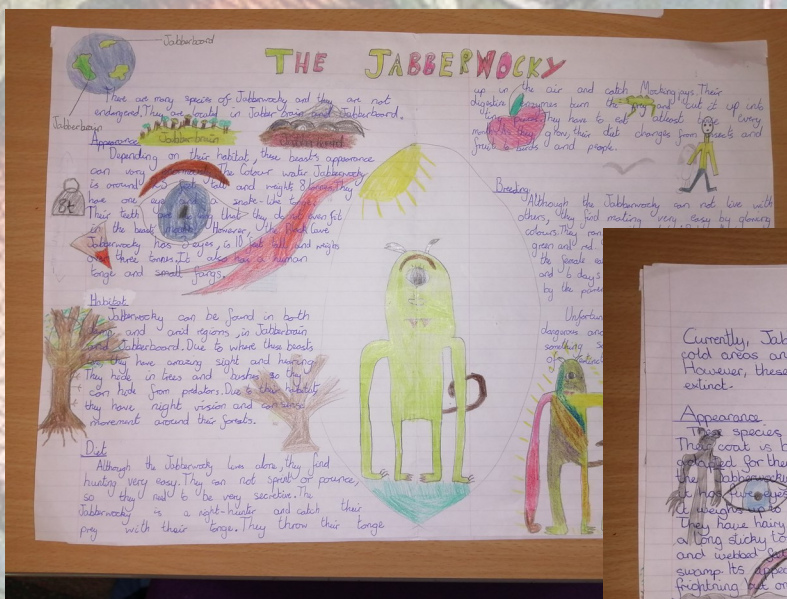 Jabberboard
THE JABBERWOCKY
Jabberbrain
There are many species of Jabberwocky and they are not
endangered. They are located in Jabberbrain and Jabberboard.
Jabberbrain
Jabberboard
Appearance
Depending on their habitat, these beasts appearance
can vary The colour water Jabberwocky
is around feet tall and weighs 8 tonnes. They
have one eye and a snake-like tonge.
8t
Their teeth are long that they do not even fit
in the beasts mouth. However, the Rock Cave
Jabberwocky has 3 eyes, is 10 feet tall and weighs
over three tonnes. It also has a human
tonge and small fangs.
Habitat
Jabberwocky can be found in both
damp and arid regions, in Jabberbrain
and Jabberboard. Due to where these beasts
live, they have amazing sight and hearing.
They hide in trees and bushes so they
can hide from predators. Due to their habitat,
they have night vision and can sense
movement around their forests.
Diet
Although the Jabberwocky lives alone, they find
hunting very easy. They can not sprint or pounce,
so they need to be very secretive. The
Jabberwocky is a night-hunter and catch their
prey with their tonge. They throw their tonge
up in the air and catch Mockingjays. Their
digestive enzymes burn the prey and cut it up into
tiny pieces. They have to eat atleast twice every
month. As they grow, their diet changes from insects and
fruit to birds and people.
Breeding
Although the Jabberwocky can not live with
others, they find mating very easy by glowing
colours. They can
green and red
the female
and 6 days
by the
Unfortun
dangerous and
something
of
Currently, Jab
cold areas an
However, these
extinct.
Appearance
This species
Their coat is b
for the
the Jabberwocky
it has five eyes
It weighs up to
They have hairy
a long sticky to
and webbed
swamp. Its appea
frightning but on